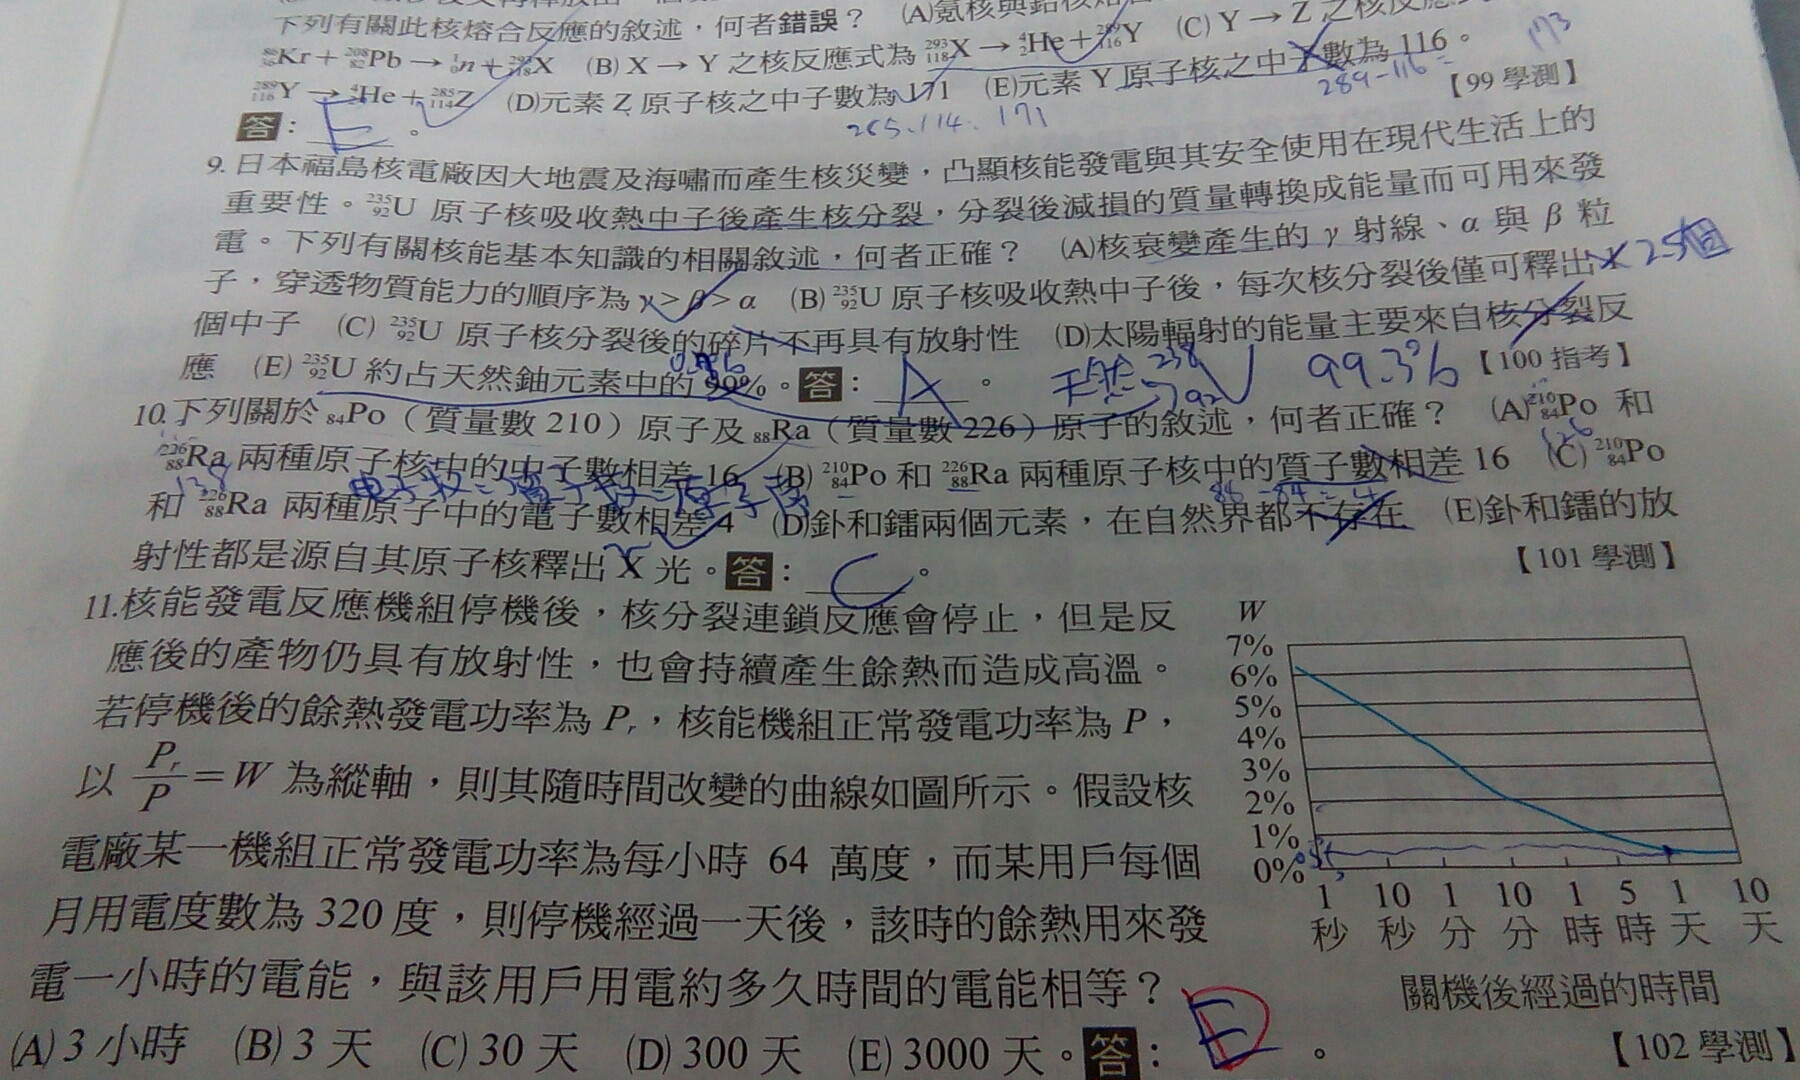 下列有關此核熔合反應的敘述，何者錯誤？ (A)氪核與鉛核熔合
⁸⁶₃₆Kr＋²⁰⁸₈₂Pb → ¹₀n＋²⁹³₁₁₈X (B) X → Y 之核反應式為 ²⁹³₁₁₈X → ⁴₂He＋²⁸⁹₁₁₆Y (C) Y → Z 之核反應式
²⁸⁹₁₁₆Y → ⁴₂He＋²⁸⁵₁₁₄Z (D)元素 Z 原子核之中子數為 171 (E)元素 Y 原子核之中子數為 116。
173
289-116=
【99 學測】
答：E。
265-114 171
9.日本福島核電廠因大地震及海嘯而產生核災變，凸顯核能發電與其安全使用在現代生活上的
重要性。²³⁵₉₂U 原子核吸收熱中子後產生核分裂，分裂後減損的質量轉換成能量而可用來發
電。下列有關核能基本知識的相關敘述，何者正確？ (A)核衰變產生的 γ 射線、α 與 β 粒
子，穿透物質能力的順序為 γ＞β＞α (B) ²³⁵₉₂U 原子核吸收熱中子後，每次核分裂後僅可釋出 1
2.5個
個中子 (C) ²³⁵₉₂U 原子核分裂後的碎片不再具有放射性 (D)太陽輻射的能量主要來自核分裂反
應 (E) ²³⁵₉₂U 約占天然鈾元素中的 99%。答：A。
天然 ²³⁸₉₂U 99.3%
【100 指考】
10.下列關於 ₈₄Po（質量數 210）原子及 ₈₈Ra（質量數 226）原子的敘述，何者正確？ (A) ²¹⁰₈₄Po 和
²²⁶₈₈Ra 兩種原子核中的中子數相差 16 (B) ²¹⁰₈₄Po 和 ²²⁶₈₈Ra 兩種原子核中的質子數相差 16 (C) ²¹⁰₈₄Po
126
138
88-84=4
和 ²²⁶₈₈Ra 兩種原子中的電子數相差 4 (D)釙和鐳兩個元素，在自然界都不存在 (E)釙和鐳的放
射性都是源自其原子核釋出 X 光。答：C。
【101 學測】
11.核能發電反應機組停機後，核分裂連鎖反應會停止，但是反
應後的產物仍具有放射性，也會持續產生餘熱而造成高溫。
若停機後的餘熱發電功率為 Pᵣ，核能機組正常發電功率為 P，
以 Pᵣ/P＝W 為縱軸，則其隨時間改變的曲線如圖所示。假設核
電廠某一機組正常發電功率為每小時 64 萬度，而某用戶每個
月用電度數為 320 度，則停機經過一天後，該時的餘熱用來發
電一小時的電能，與該用戶用電約多久時間的電能相等？
(A) 3 小時 (B) 3 天 (C) 30 天 (D) 300 天 (E) 3000 天。答：
。
W
7%
6%
5%
4%
3%
2%
1%
0%
1 10 1 10 1 5 1 10
秒 秒 分 分 時 時 天 天
關機後經過的時間
【102 學測】